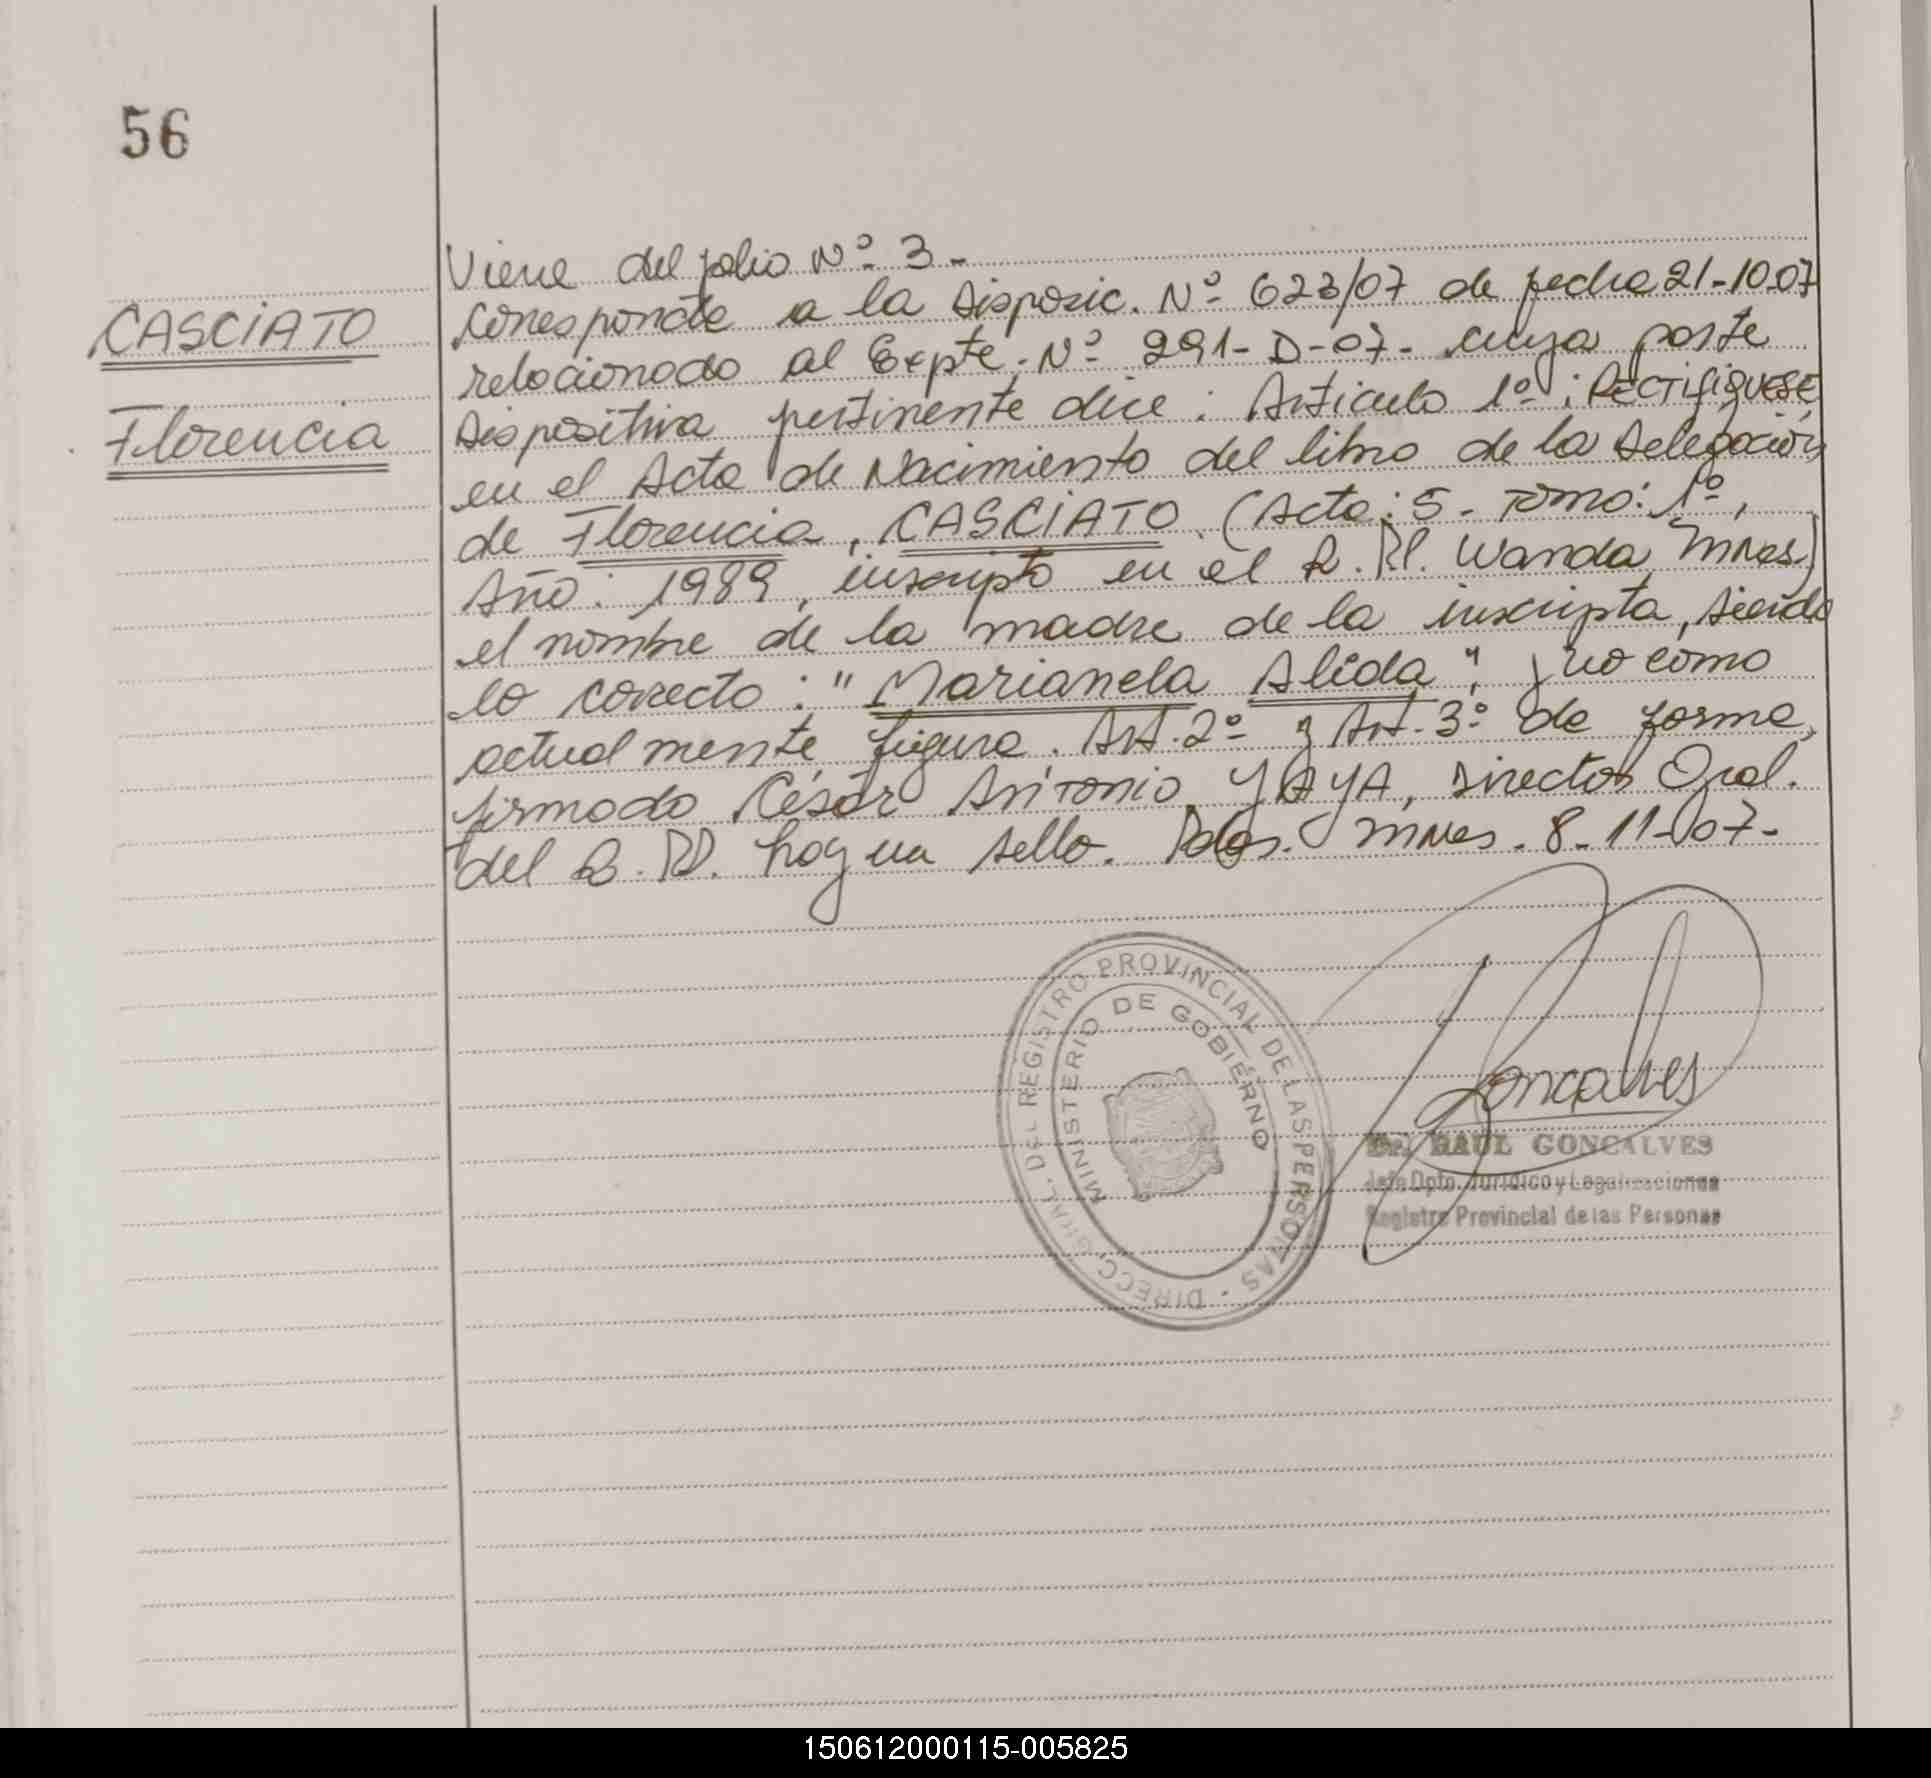 56
CASCIATO
Florencia
Viene del folio Nº 3.-
Corresponde a la Disposic. Nº 623/07 de fecha 21-10-07
relacionado al Expte. Nº 291-D-07- cuya parte
Dispositiva pertinente dice: Articulo 1º: RECTIFIQUESE
en el Acta de Nacimiento del libro de la Delegación
de Florencia, CASCIATO (Acta: 5 - Tomo: 1º,
Año: 1989, inscripto en el R.P. Wanda Mnes)
el nombre de la madre de la inscripta, siendo
lo correcto: "Marianela Alida", y no como
actualmente figura. Art. 2º y Art. 3º de forma,
firmado César Antonio YAYA, Director Gral.
del R.P. hay un sello. Pdas. Mnes. 8-11-07-
DIRECC. GRAL. DEL REGISTRO PROVINCIAL DE LAS PERSONAS
MINISTERIO DE GOBIERNO
Goncalves
Dr. RAUL GONCALVES
Jefe Dpto. Jurídico y Legalizaciones
Registro Provincial de las Personas
150612000115-005825